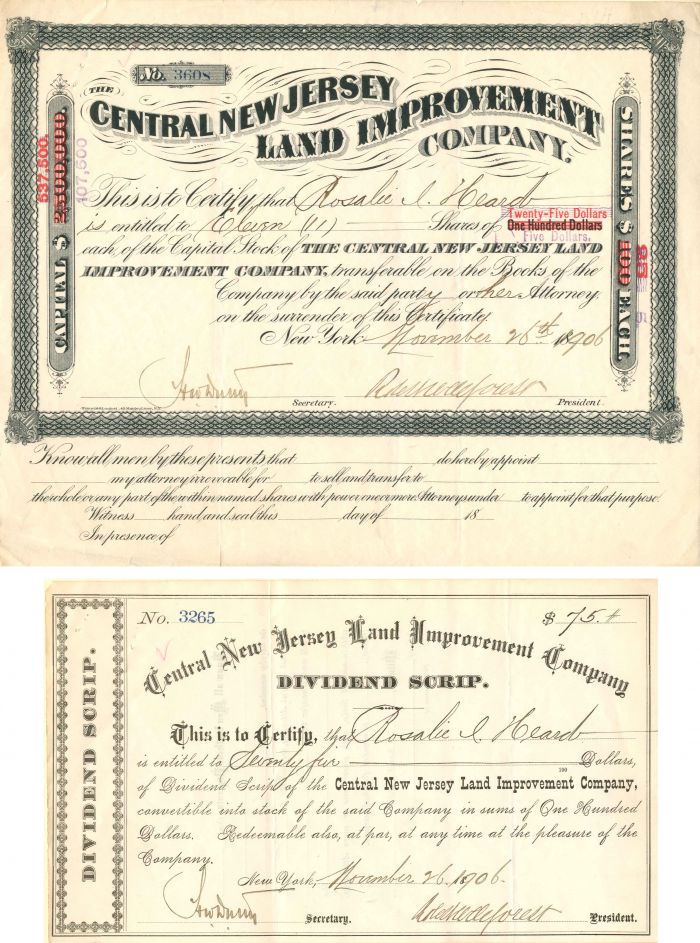 No. 3608
THE
CENTRAL NEW JERSEY
LAND IMPROVEMENT
COMPANY.
CAPITAL $ 2,500,000.
537,500.
107,500
SHARES $ 100 EACH.
25
This is to Certify, that Rosalie I. Heard
is entitled to Eleven (11) Shares of One Hundred Dollars
Twenty-Five Dollars
Five Dollars.
each of the Capital Stock of THE CENTRAL NEW JERSEY LAND
IMPROVEMENT COMPANY, transferable on the Books of the
Company by the said party or her Attorney
on the surrender of this Certificate.
New York November 26th 1906
Secretary. President.
Know all men by these presents that do hereby appoint
my attorney irrevocable for to sell and transfer to
the whole or any part of the within named shares with power one or more Attorneys under to appoint for that purpose.
Witness hand and seal this day of 18
In presence of
DIVIDEND SCRIP.
No. 3265 $ 75.
Central New Jersey Land Improvement Company
DIVIDEND SCRIP.
This is to Certify, that Rosalie I. Heard
is entitled to Seventy five 100 Dollars,
of Dividend Scrip of the Central New Jersey Land Improvement Company,
convertible into stock of the said Company in sums of One Hundred
Dollars. Redeemable also, at par, at any time at the pleasure of the
Company.
New York, November 26. 1906.
Secretary. President.